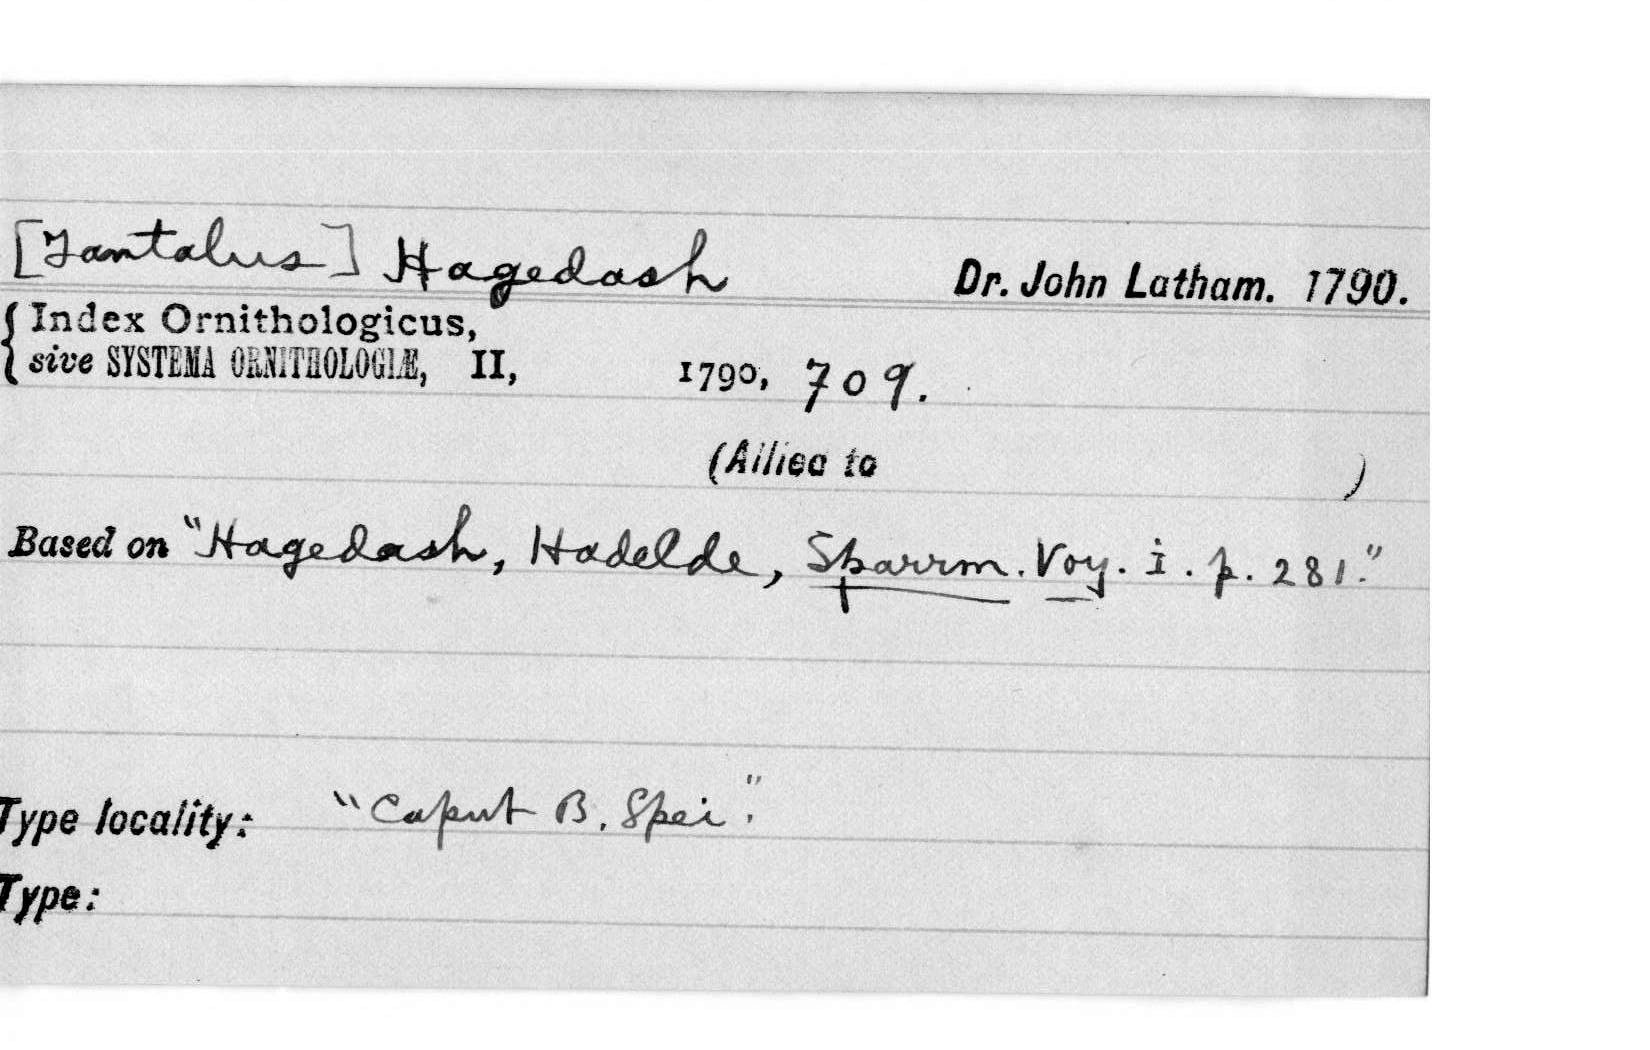 [Tantalus] Hagedash Dr. John Latham. 1790.
Index Ornithologicus,
sive SYSTEMA ORNITHOLOGIÆ, II, 1790, 709.
(Allied to )
Based on "Hagedash, Hadelde, Sparrm. Voy. i. p. 281."
Type locality: "Caput B. Spei".
Type: